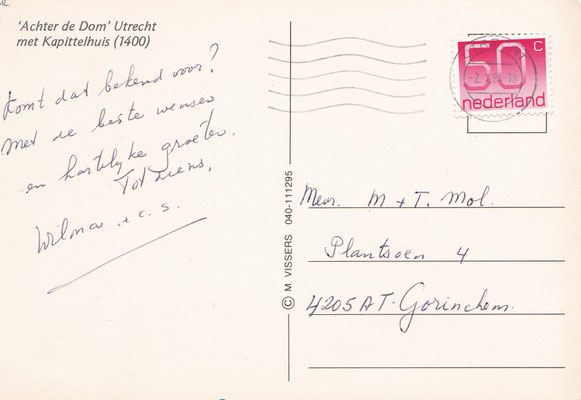 'Achter de Dom' Utrecht
met Kapittelhuis (1400)
Komt dat bekend voor?
Met de beste wensen
en hartelyke groeten.
Tot ziens,
Wilma + c.s.
© M. VISSERS 040-111295
50 c
nederland
-2.X.86.-18
Mevr. M + T. Mol.
Plantsoen 4
4205 AT. Gorinchem.